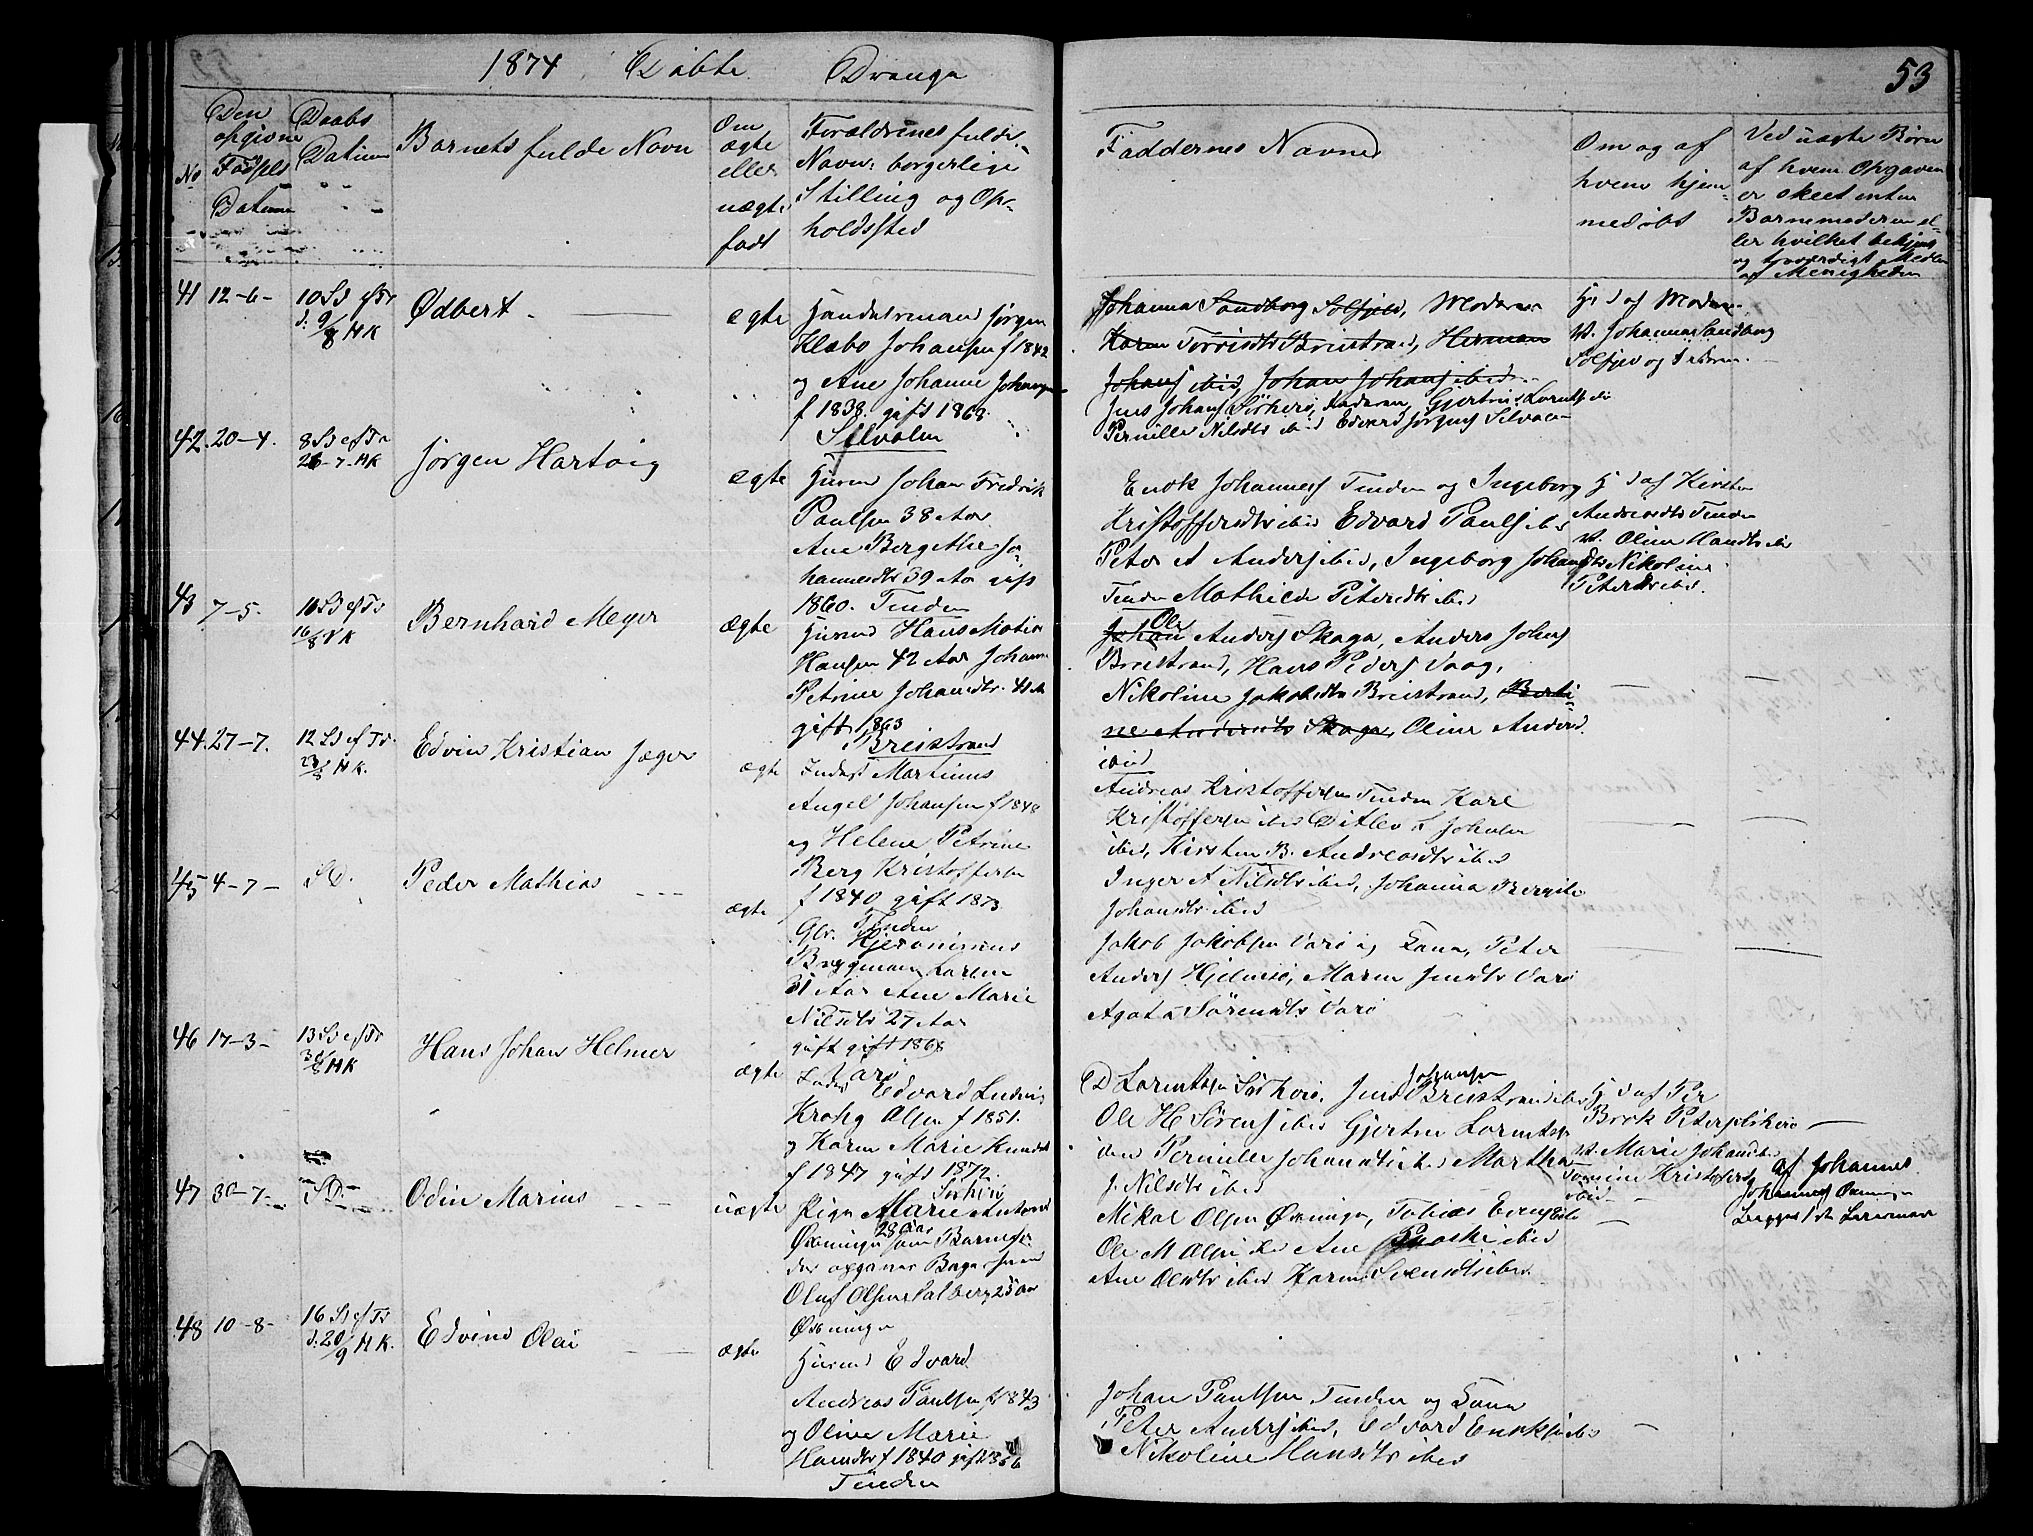 1874 Døbte Drenge
53
No
Den opgivne Fødsels Datum
Daabs Datum
Barnets fulde Navn
Om ægte eller uægte født
Forældrenes fulde Navn, borgerlige Stilling og Opholdssted
Faddernes Navne
Om og af hvem hjemmedøbt
Ved uægte Børn af hvem Opgaven er skeet enten Barnemoderen eller hvilket bekjendt og troværdigt Medlem af Menigheden
41 12-6-
10 Sd ef Tr
d. 9/8 HK
Ødbert
ægte
Handelsmand Jørgen
Klæbo Johansen f 1842
og Ane Johanne Johansen
f 1838 gift 1868
Selvolm
Johanna Sandberg Solfjeld, Moderen
Karen Torrisdtr Breistrand, Herman
Johans ibid, Johan Johans ibid
Jens Johans Sørherø, Faderen, Gjertrud Lorents ibi
Pernille Nilsdtr ibid Edvard Jørgens Selvaen
Hj d af Moderen
v. Johanna Sandberg
Solfjeld og Faderen
42. 20-4.
8 Sd ef Tr
26-7. HK
Jørgen Hartvig
ægte
Husmd Johan Fredrik
Paulsen 38 Aar
Ane Bergithe Jo-
hannesdtr 39 Aar gift
1860. Tenden
Enok Johannes Tenden og Ingeborg
Kristoffersdtr ibid Edvard Pauls ibid
Peter A Anders ibid, Ingeborg Johansdtr
Tenden Mathilde Petersdtr ibid
Hj d af Kirsten
Andreasdtr Tenden
v. Oline Hansdtr ibi
Nikoline
Petersdtr ibid.
43 7-5.
11 Sd ef Tr
16/8 VK
Bernhard Meyer
ægte
Husmd Hans Mathias
Hansen 42 Aar Johanna
Petrine Johansdtr. 41 A
gift 1863
Breistrand
Johan Ole Anders Skaga, Anders Johns
Breistrand, Hans Peders Vaag,
Nikoline Jakobsdtr Breistrand, Berti-
ne Andersdtr Skaga, Oline Andersd
ibid
44. 27-7.
12 Sd ef Tr.
23/8 HK.
Edvin Kristian Jæger
ægte
Inderst Martinus
Angel Johansen f 1848
og Helene Petrine
Berg Kristoffersen
f 1840 gift 1873
Tenden
Andreas Kristoffersen Tenden Karl
Kristoffersen ibid Ditlev S Johnsen
ibid, Kirsten B. Andreasdtr ibid
Inger A Nilsdtr ibid, Johanna Bergite
Johansdtr ibid
45 4-7-
SD.
Peder Mathias
ægte
Gbr. Hjeronimus
Brygmann Larsen
31 Aar Ane Marie
Nilsdtr 27 Aar
gift gift 1868
Varø
Jakob Jakobsen Varø og Kona, Peter
Anders Hjelmsø, Maren Jensdtr Varø
Agata Sørensdtr Varø
46 17-3-
13 Sd ef Tr
30/8 HK
Hans Johan Helmer
ægte
Inderst Edvard Ludvig
Krohg Olsen f 1851.
og Karen Marie Knudsdtr
f 1847 gift 1872.
Sørherø
D Lorentsen Sørherø, Jens Johansen Breistrand ibid
Ole H Sørens ibid Gjertru Lorents
ibid Pernille Johansdtr ibid Martha
J. Nilsdtr ibid
Hj d af Per
Brok Peters Sørherø
v. Marie Johansdtr
Tomine Kristofers
ibid
47 30-7-
SD.
Odin Marius
uægte
Pige Marie Antonsd
Øxningen 28 Aar som Barnefa-
der opgiver Bagersvend
Oluf Olsen Dalberg 25 Aar
Øxningen
Mikal Olsen Øxningen, Tobias Evens ibid
Ole M Olsen ibid Ane ibid
Ane Olsdtr ibid Karen Svensdtr ibid.
af Johannes
Johannes Øxningen
48 10-8-
16 Sd ef Tr
d. 20/9 HK.
Edvind Olai
ægte
Husmd Edvard
Andreas Paulsen f 1843
og Oline Marie
Hansdtr f 1840 gift 1866
Tenden
Johan Paulsen Tenden og Kona
Peter Anders ibid, Edvard Enoks ibid
Nikoline Hansdtr ibid